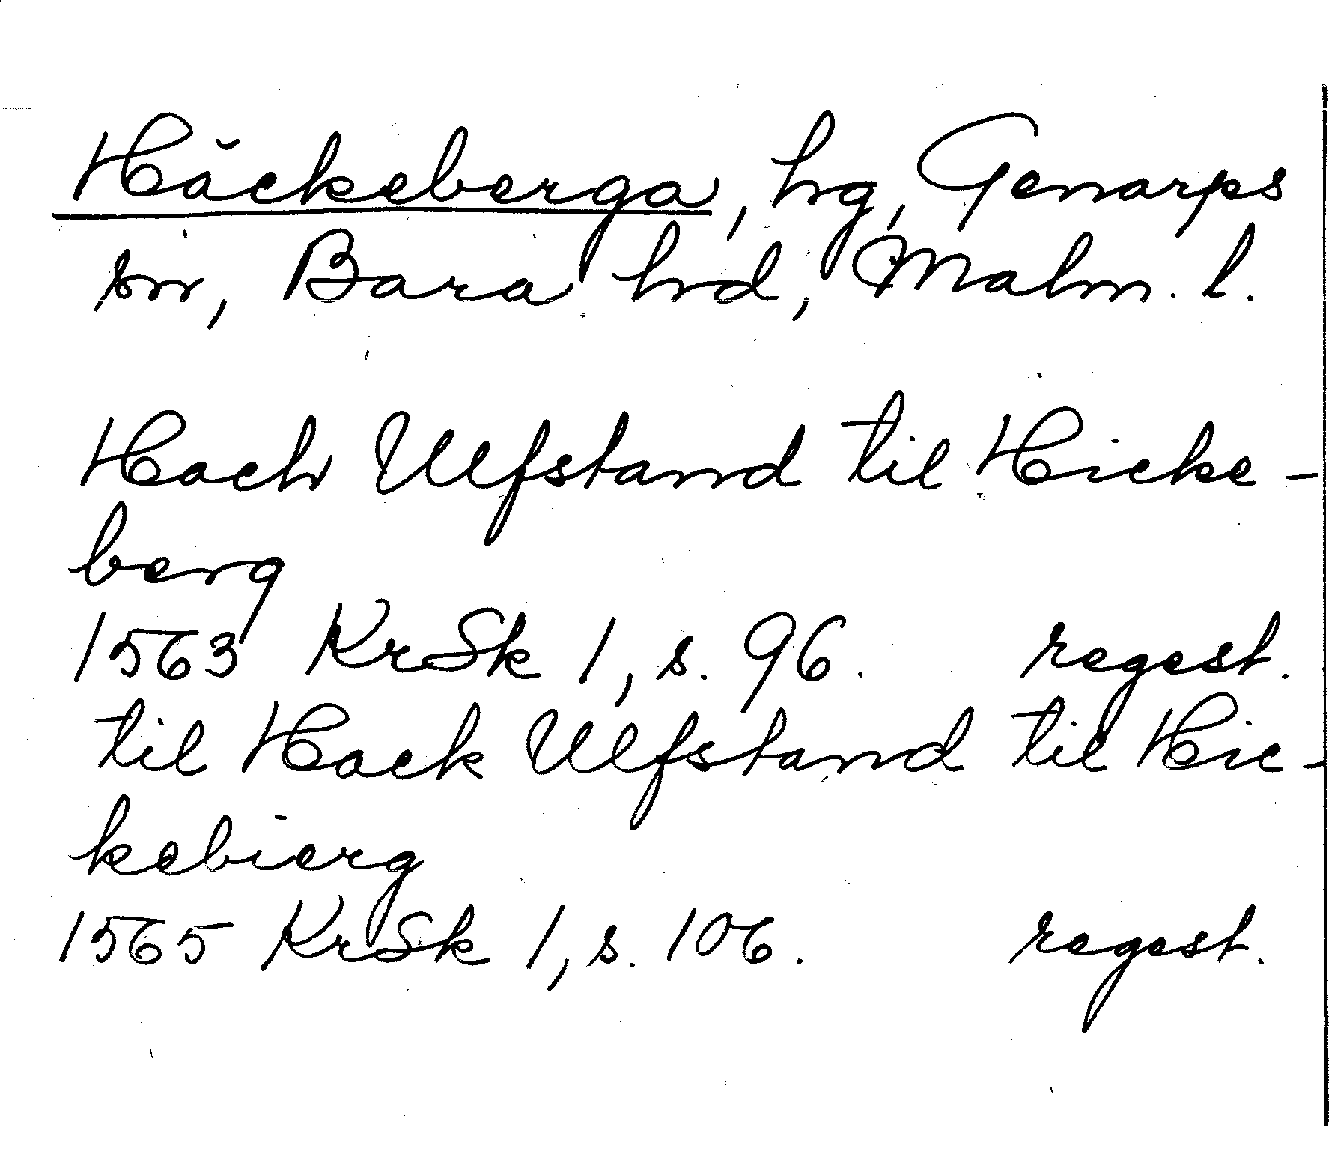 Häckeberga, hg, Genarps
sn, Bara hd, Malm. l.
Hach Ulfstand til Hicke-
berg
1563 KrSk 1, s. 96. regest.
til Hack Ulfstand til Hic-
kebierg
1565 KrSk 1, s. 106. regest.